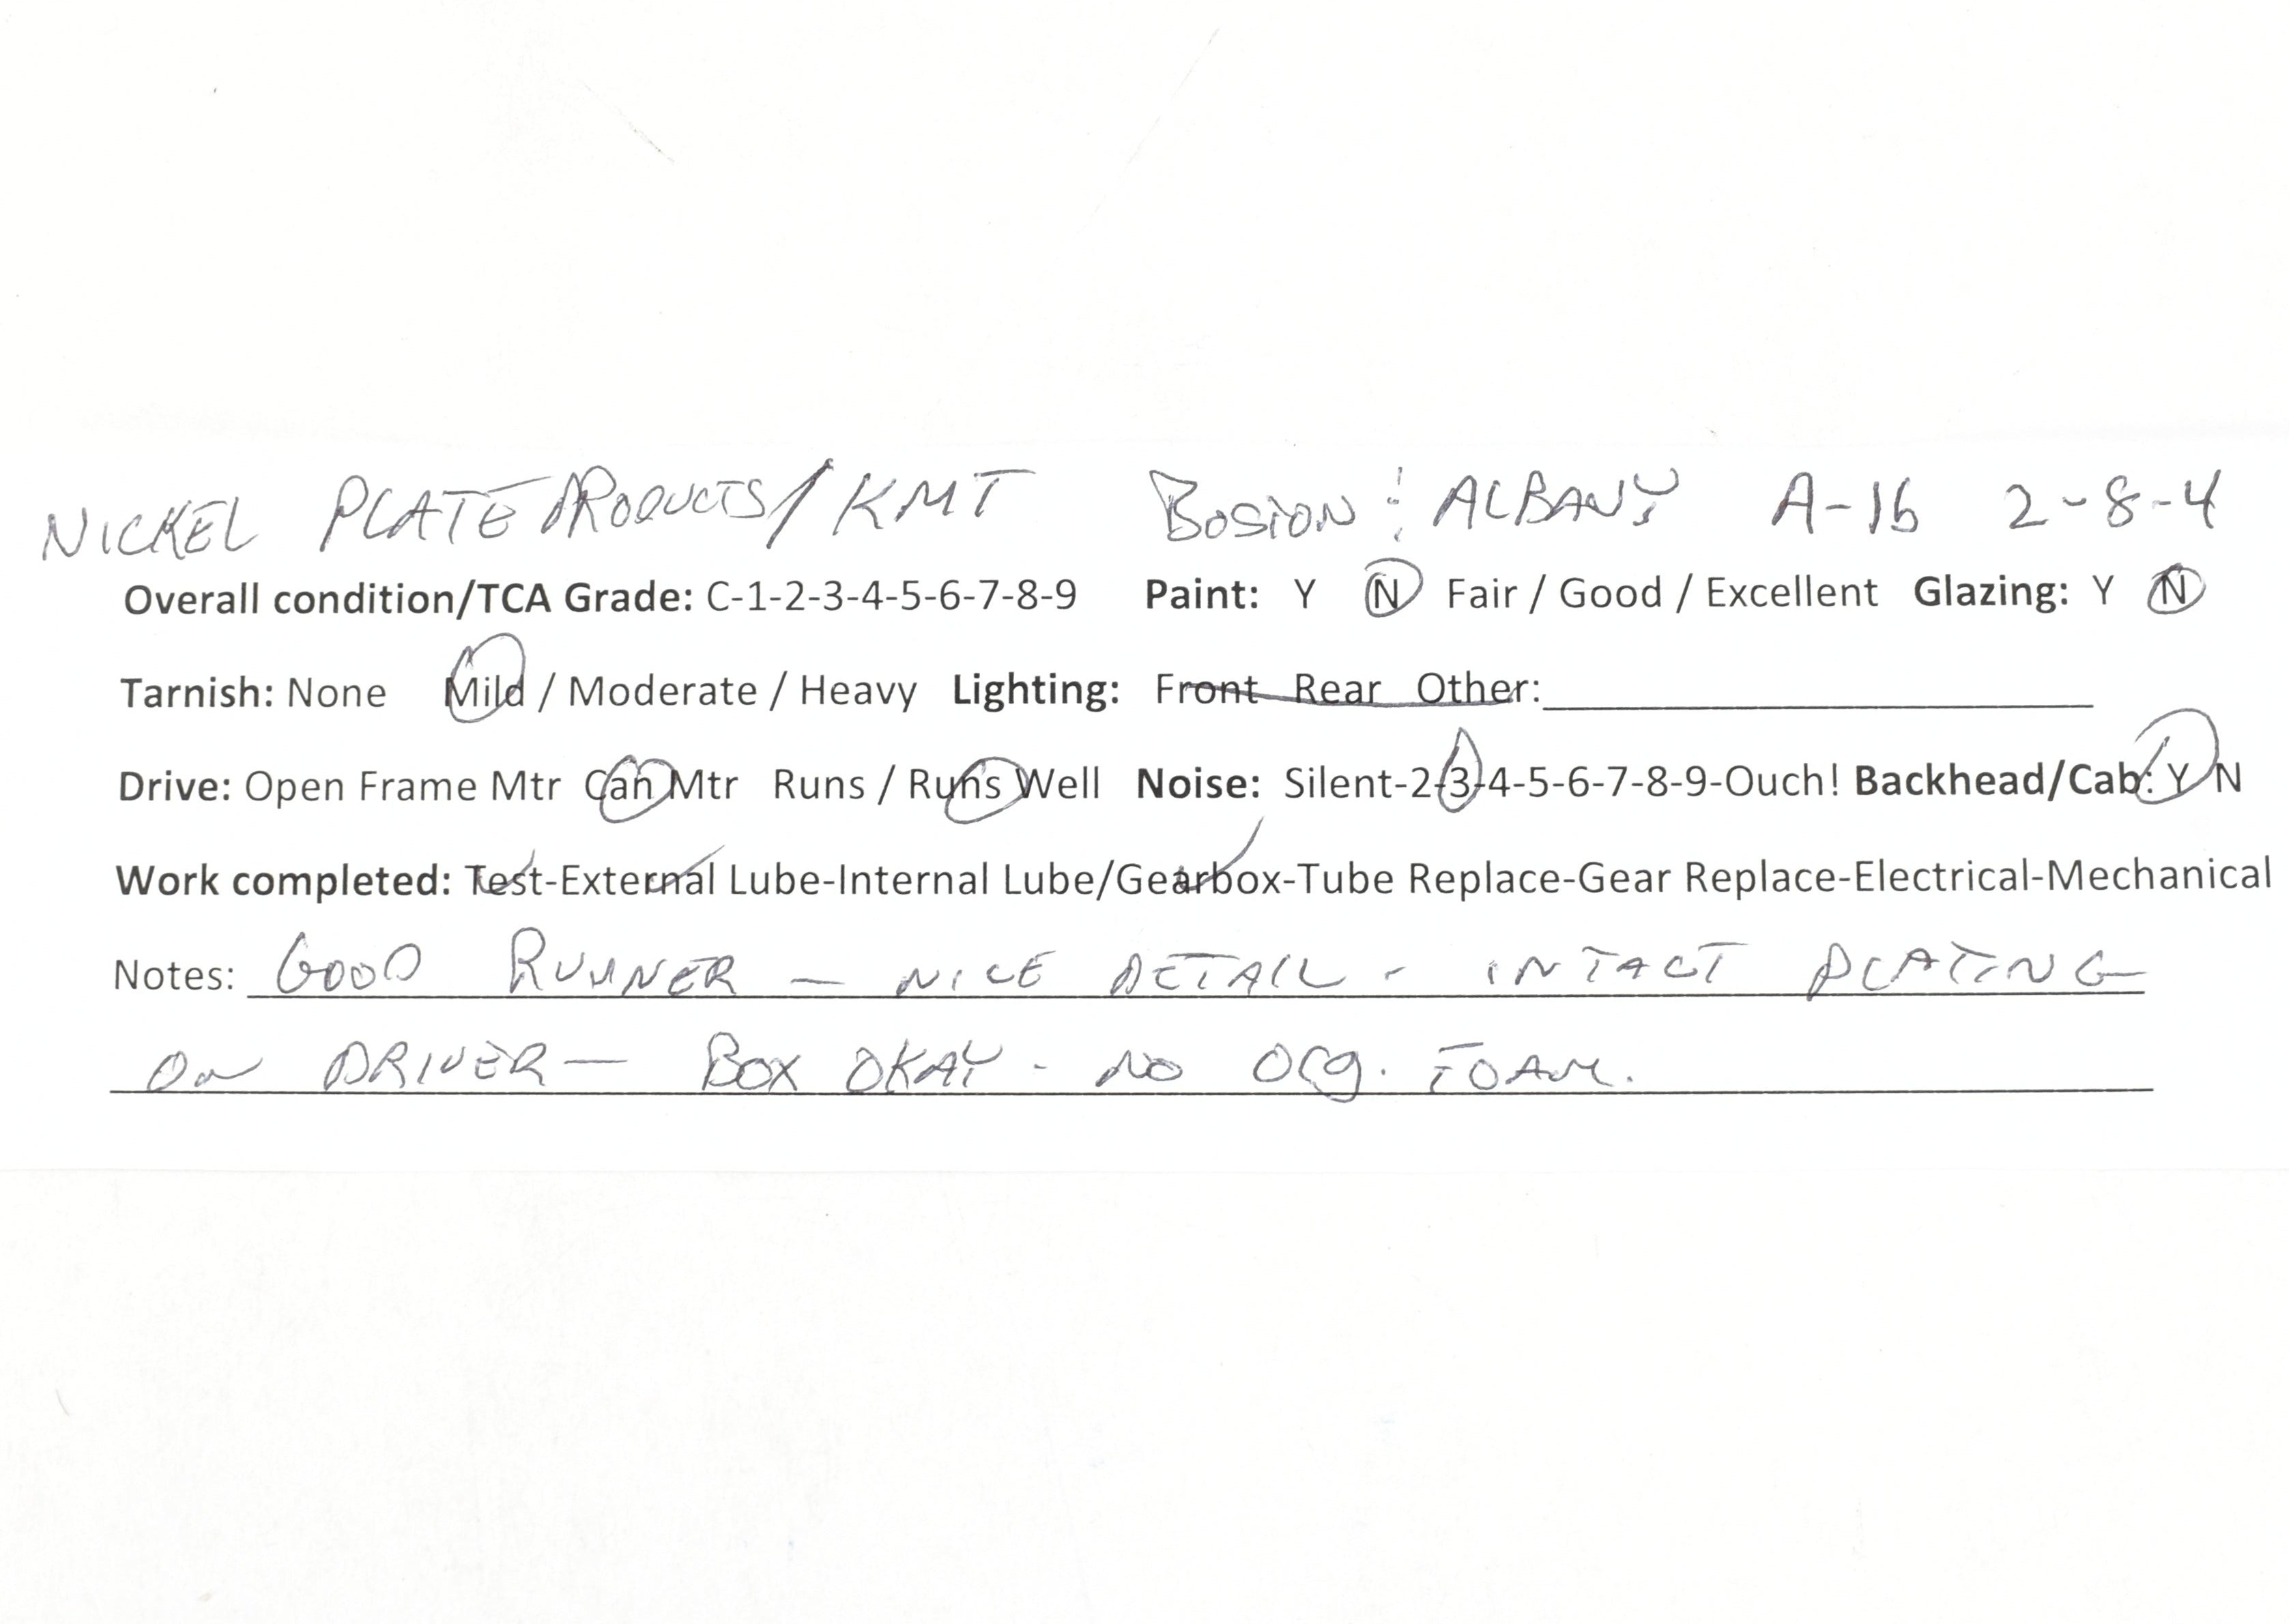 NICKEL PLATE PRODUCTS/KMT BOSTON & ALBANY A-16 2-8-4
Overall condition/TCA Grade: C-1-2-3-4-5-6-7-8-9 Paint: Y N Fair / Good / Excellent Glazing: Y N
Tarnish: None Mild / Moderate / Heavy Lighting: Front Rear Other:
Drive: Open Frame Mtr Can Mtr Runs / Runs Well Noise: Silent-2-3-4-5-6-7-8-9-Ouch! Backhead/Cab: Y N
Work completed: Test-External Lube-Internal Lube/Gearbox-Tube Replace-Gear Replace-Electrical-Mechanical
Notes: GOOD RUNNER - NICE DETAIL - INTACT PLATING
ON DRIVER - BOX OKAY - NO ORG. FOAM.